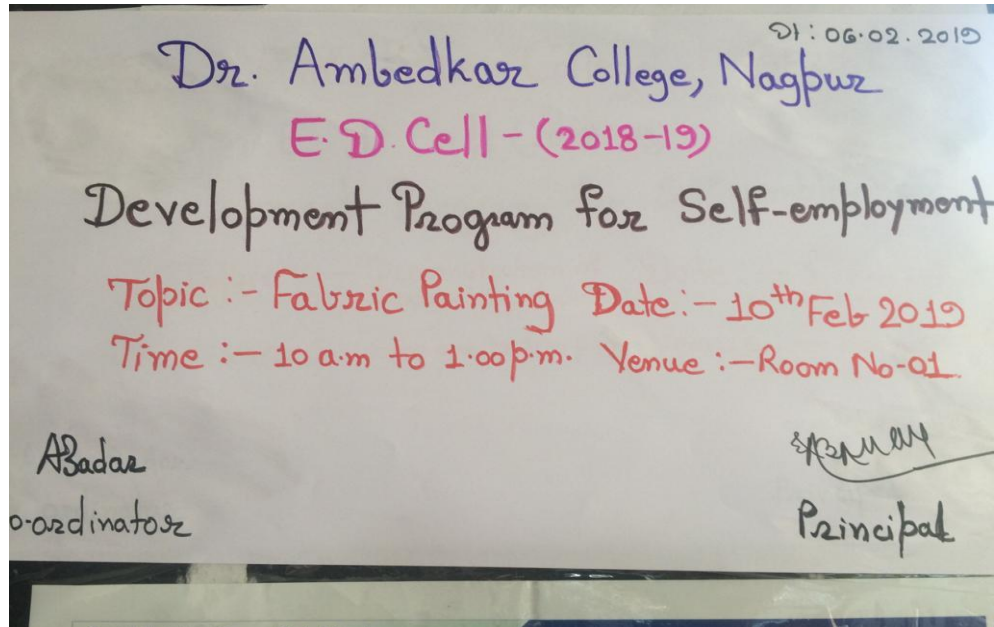 Dt: 06.02.2019
Dr. Ambedkar College, Nagpur
E.D. Cell - (2018-19)
Development Program for Self-employment
Topic :- Fabric Painting Date:- 10th Feb 2019
Time :- 10 a.m to 1.00 p.m. Venue :- Room No-01.
ABadar
o-ordinator
Principal